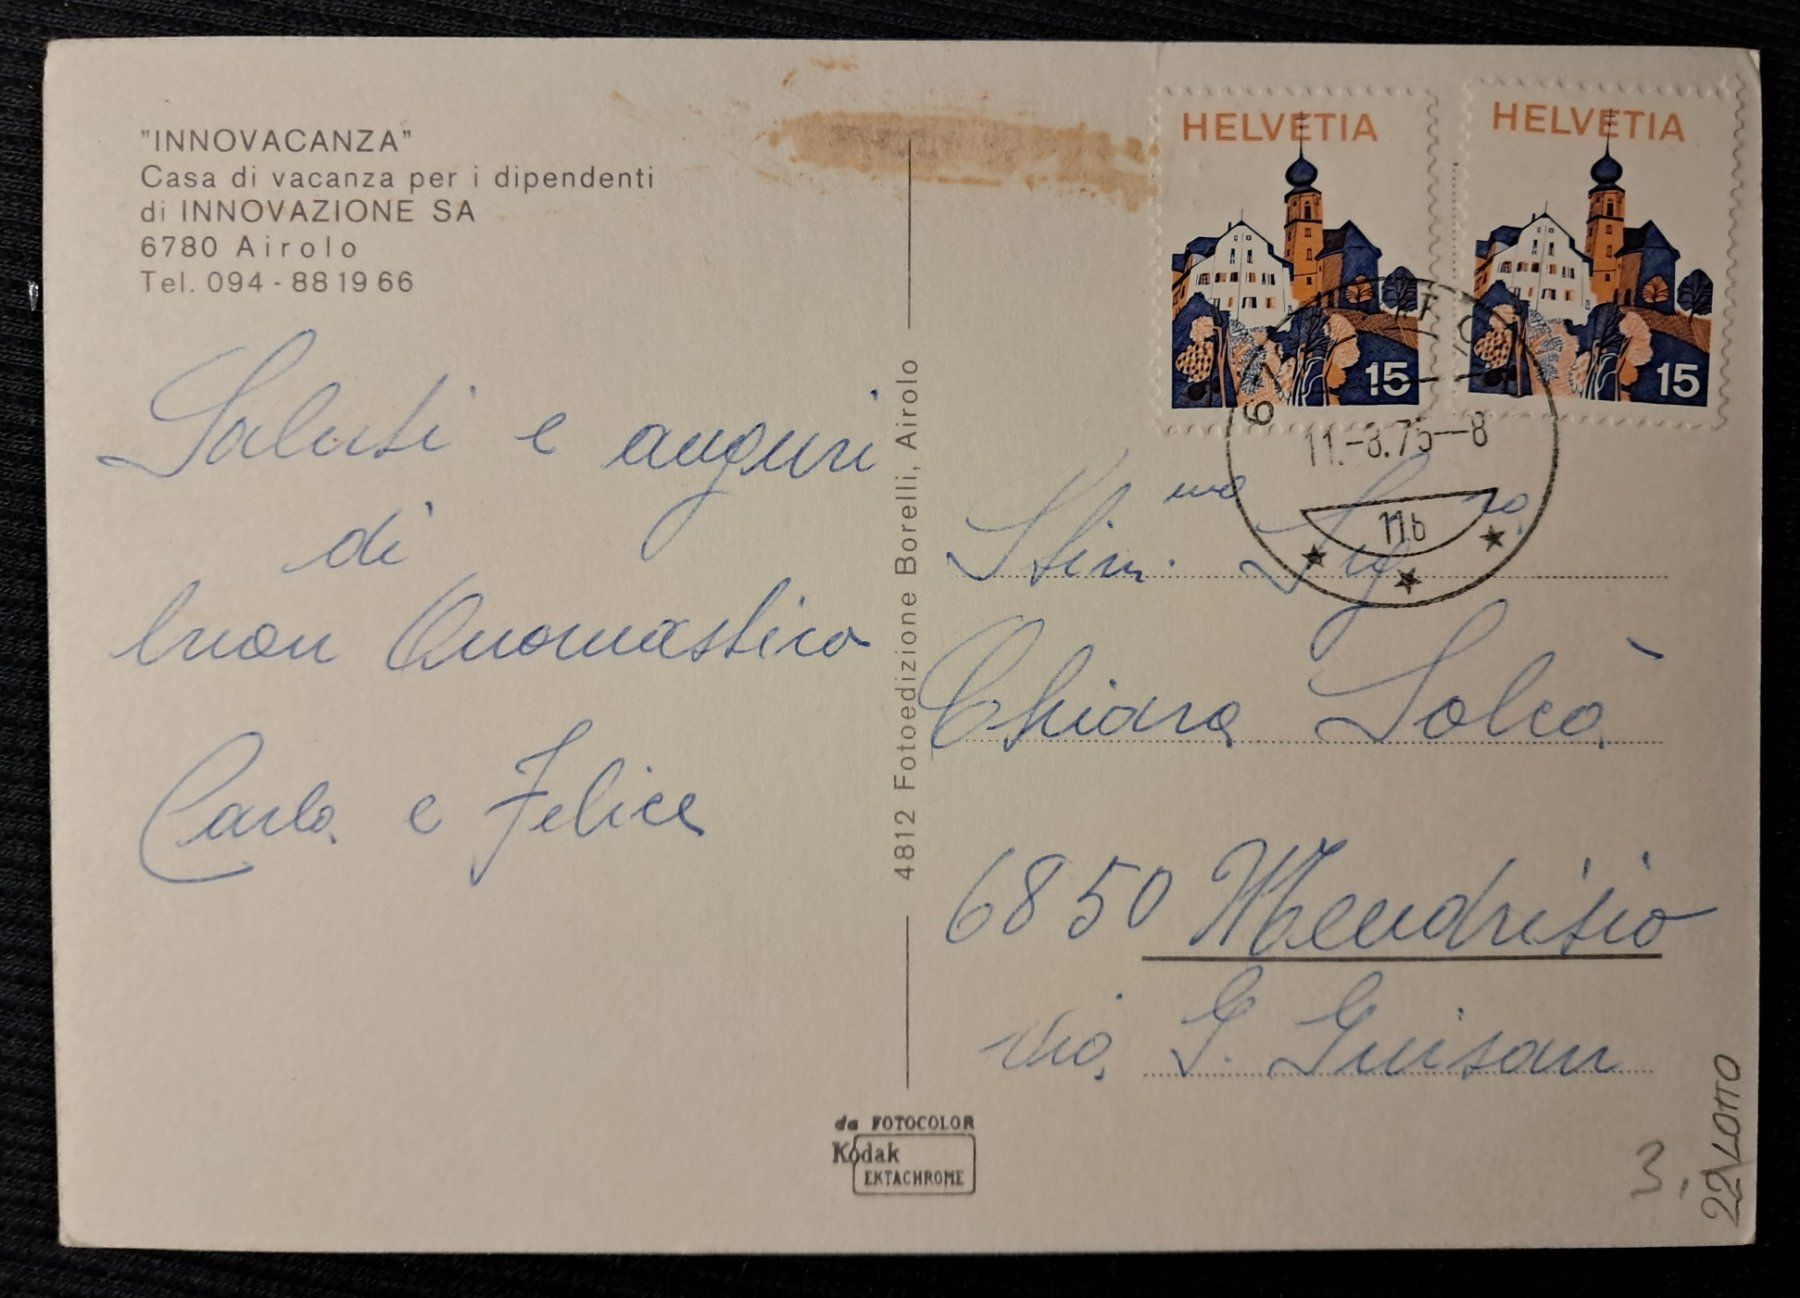 "INNOVACANZA"
Casa di vacanza per i dipendenti
di INNOVAZIONE SA
6780 Airolo
Tel. 094 - 88 19 66
Saluti e auguri
di
buon Onomastico
Carla e Felice
4812 Fotoedizione Borelli, Airolo
da FOTOCOLOR
Kodak
EKTACHROME
HELVETIA
15
HELVETIA
15
11.-8.75--8
11b
Stim.ma Sig.ra
Chiara Solcà
6850 Mendrisio
via G. Guisan
3.
22 LOTTO